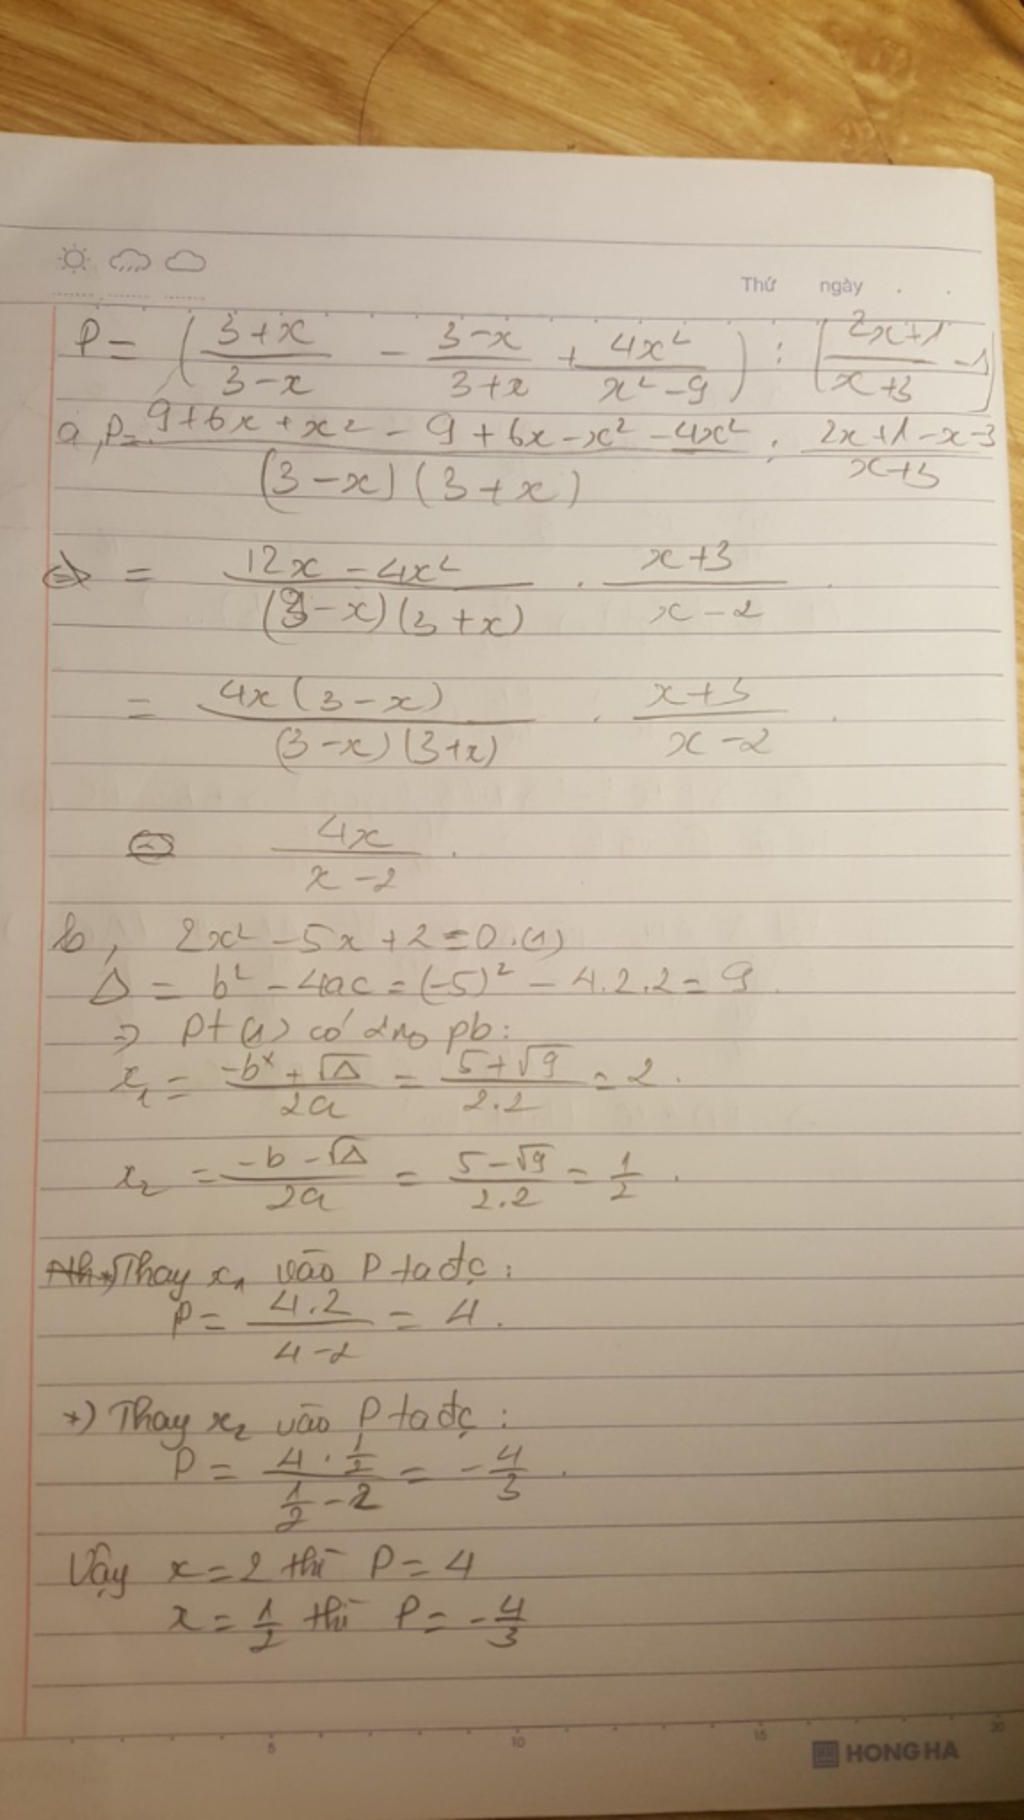 Thứ ngày
P = ( 3+x / 3-x - 3-x / 3+x + 4x² / x²-9 ) : ( 2x+1 / x+3 - 1 )
a, P = 9+6x+x² - 9+6x-x² - 4x² / (3-x)(3+x) : 2x+1-x-3 / x+3
= 12x - 4x² / (3-x)(3+x) . x+3 / x-2 .
= 4x(3-x) / (3-x)(3+x) . x+3 / x-2 .
4x / x-2 .
b, 2x² - 5x + 2 = 0. (1)
Δ = b² - 4ac = (-5)² - 4.2.2 = 9 .
=> Pt (1) có 2 no pb:
x₁ = -b + √Δ / 2a = 5+√9 / 2.2 = 2 .
x₂ = -b - √Δ / 2a = 5-√9 / 2.2 = 1/2 .
Thay x₁ vào P ta đc :
P = 4.2 / 4-2 = 4 .
*) Thay x₂ vào P ta đc :
P = 4 . 1/2 / 1/2 - 2 = - 4/3 .
Vậy x = 2 thì P = 4
x = 1/2 thì P = - 4/3
5 10 15 20
HONG HA